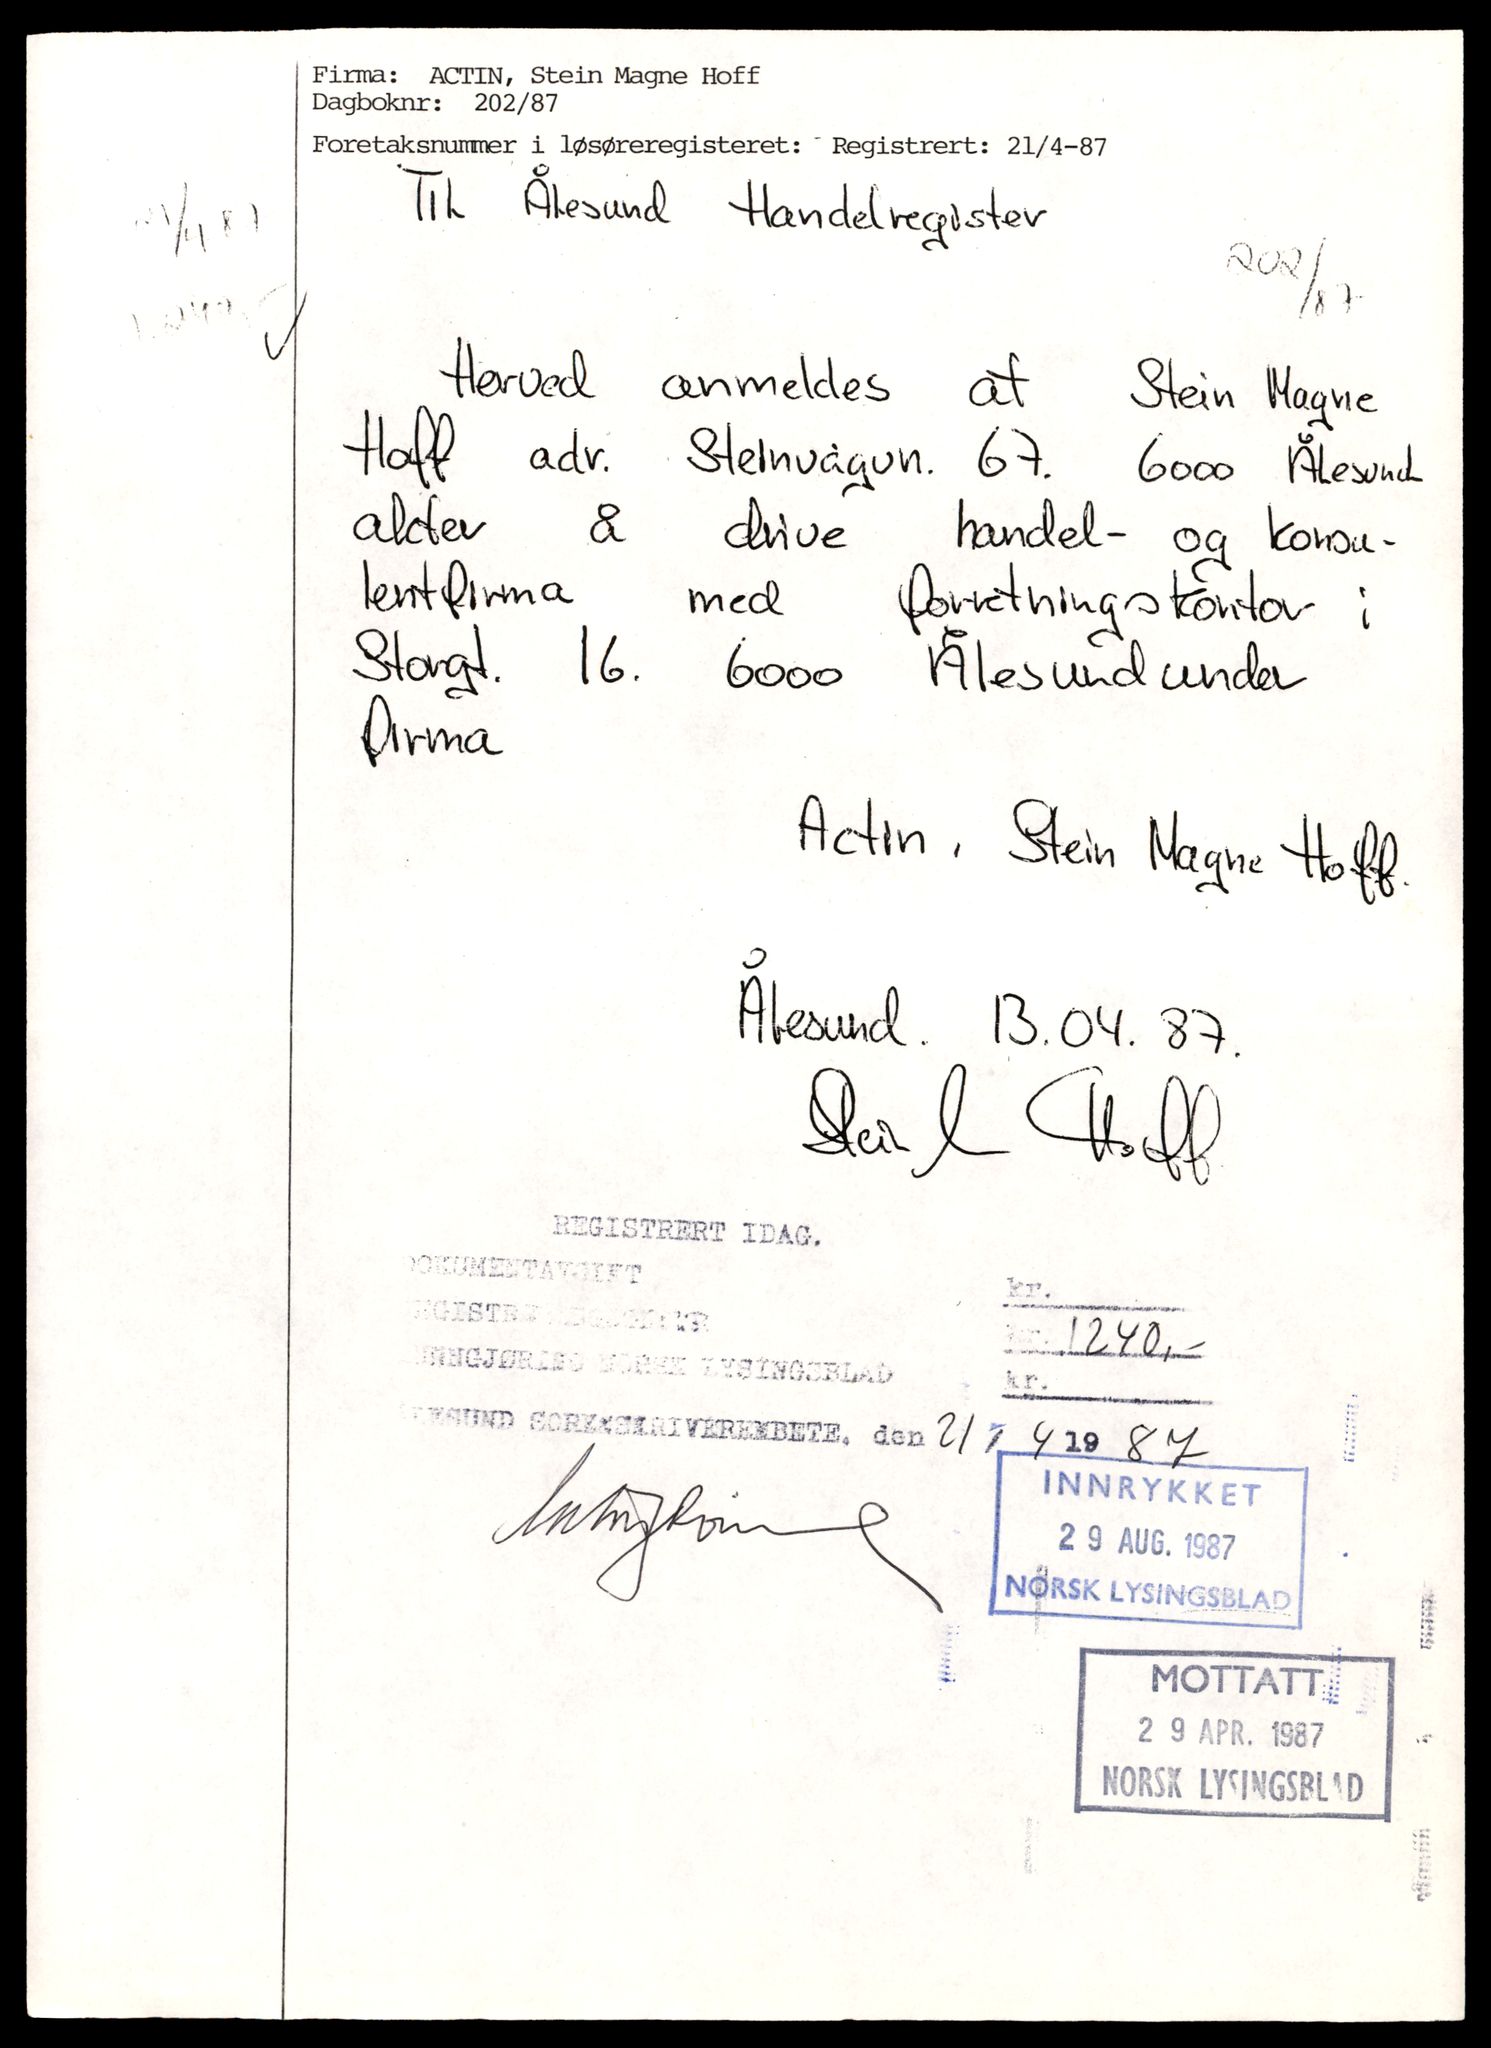 Firma: ACTIN, Stein Magne Hoff
Dagboknr: 202/87
Foretaksnummer i løsøreregisteret: Registrert: 21/4-87
Til Ålesund Handelregister
202/87
Herved anmeldes at Stein Magne
Hoff adr. Steinvågvn. 67. 6000 Ålesund
akter å drive handel- og konsu-
lentfirma med forretningskontor i
Storgt. 16. 6000 Ålesund under
firma
Actin, Stein Magne Hoff.
Ålesund. 13.04.87.
Stein M Hoff
REGISTRERT IDAG.
DOKUMENTAVGIFT kr.
kr. 1240,-
NORSK LYSINGSBLAD kr.
ÅLESUND SORENSKRIVEREMBETE, den 21/4 1987
INNRYKKET
29 AUG. 1987
NORSK LYSINGSBLAD
MOTTATT
29 APR. 1987
NORSK LYSINGSBLAD